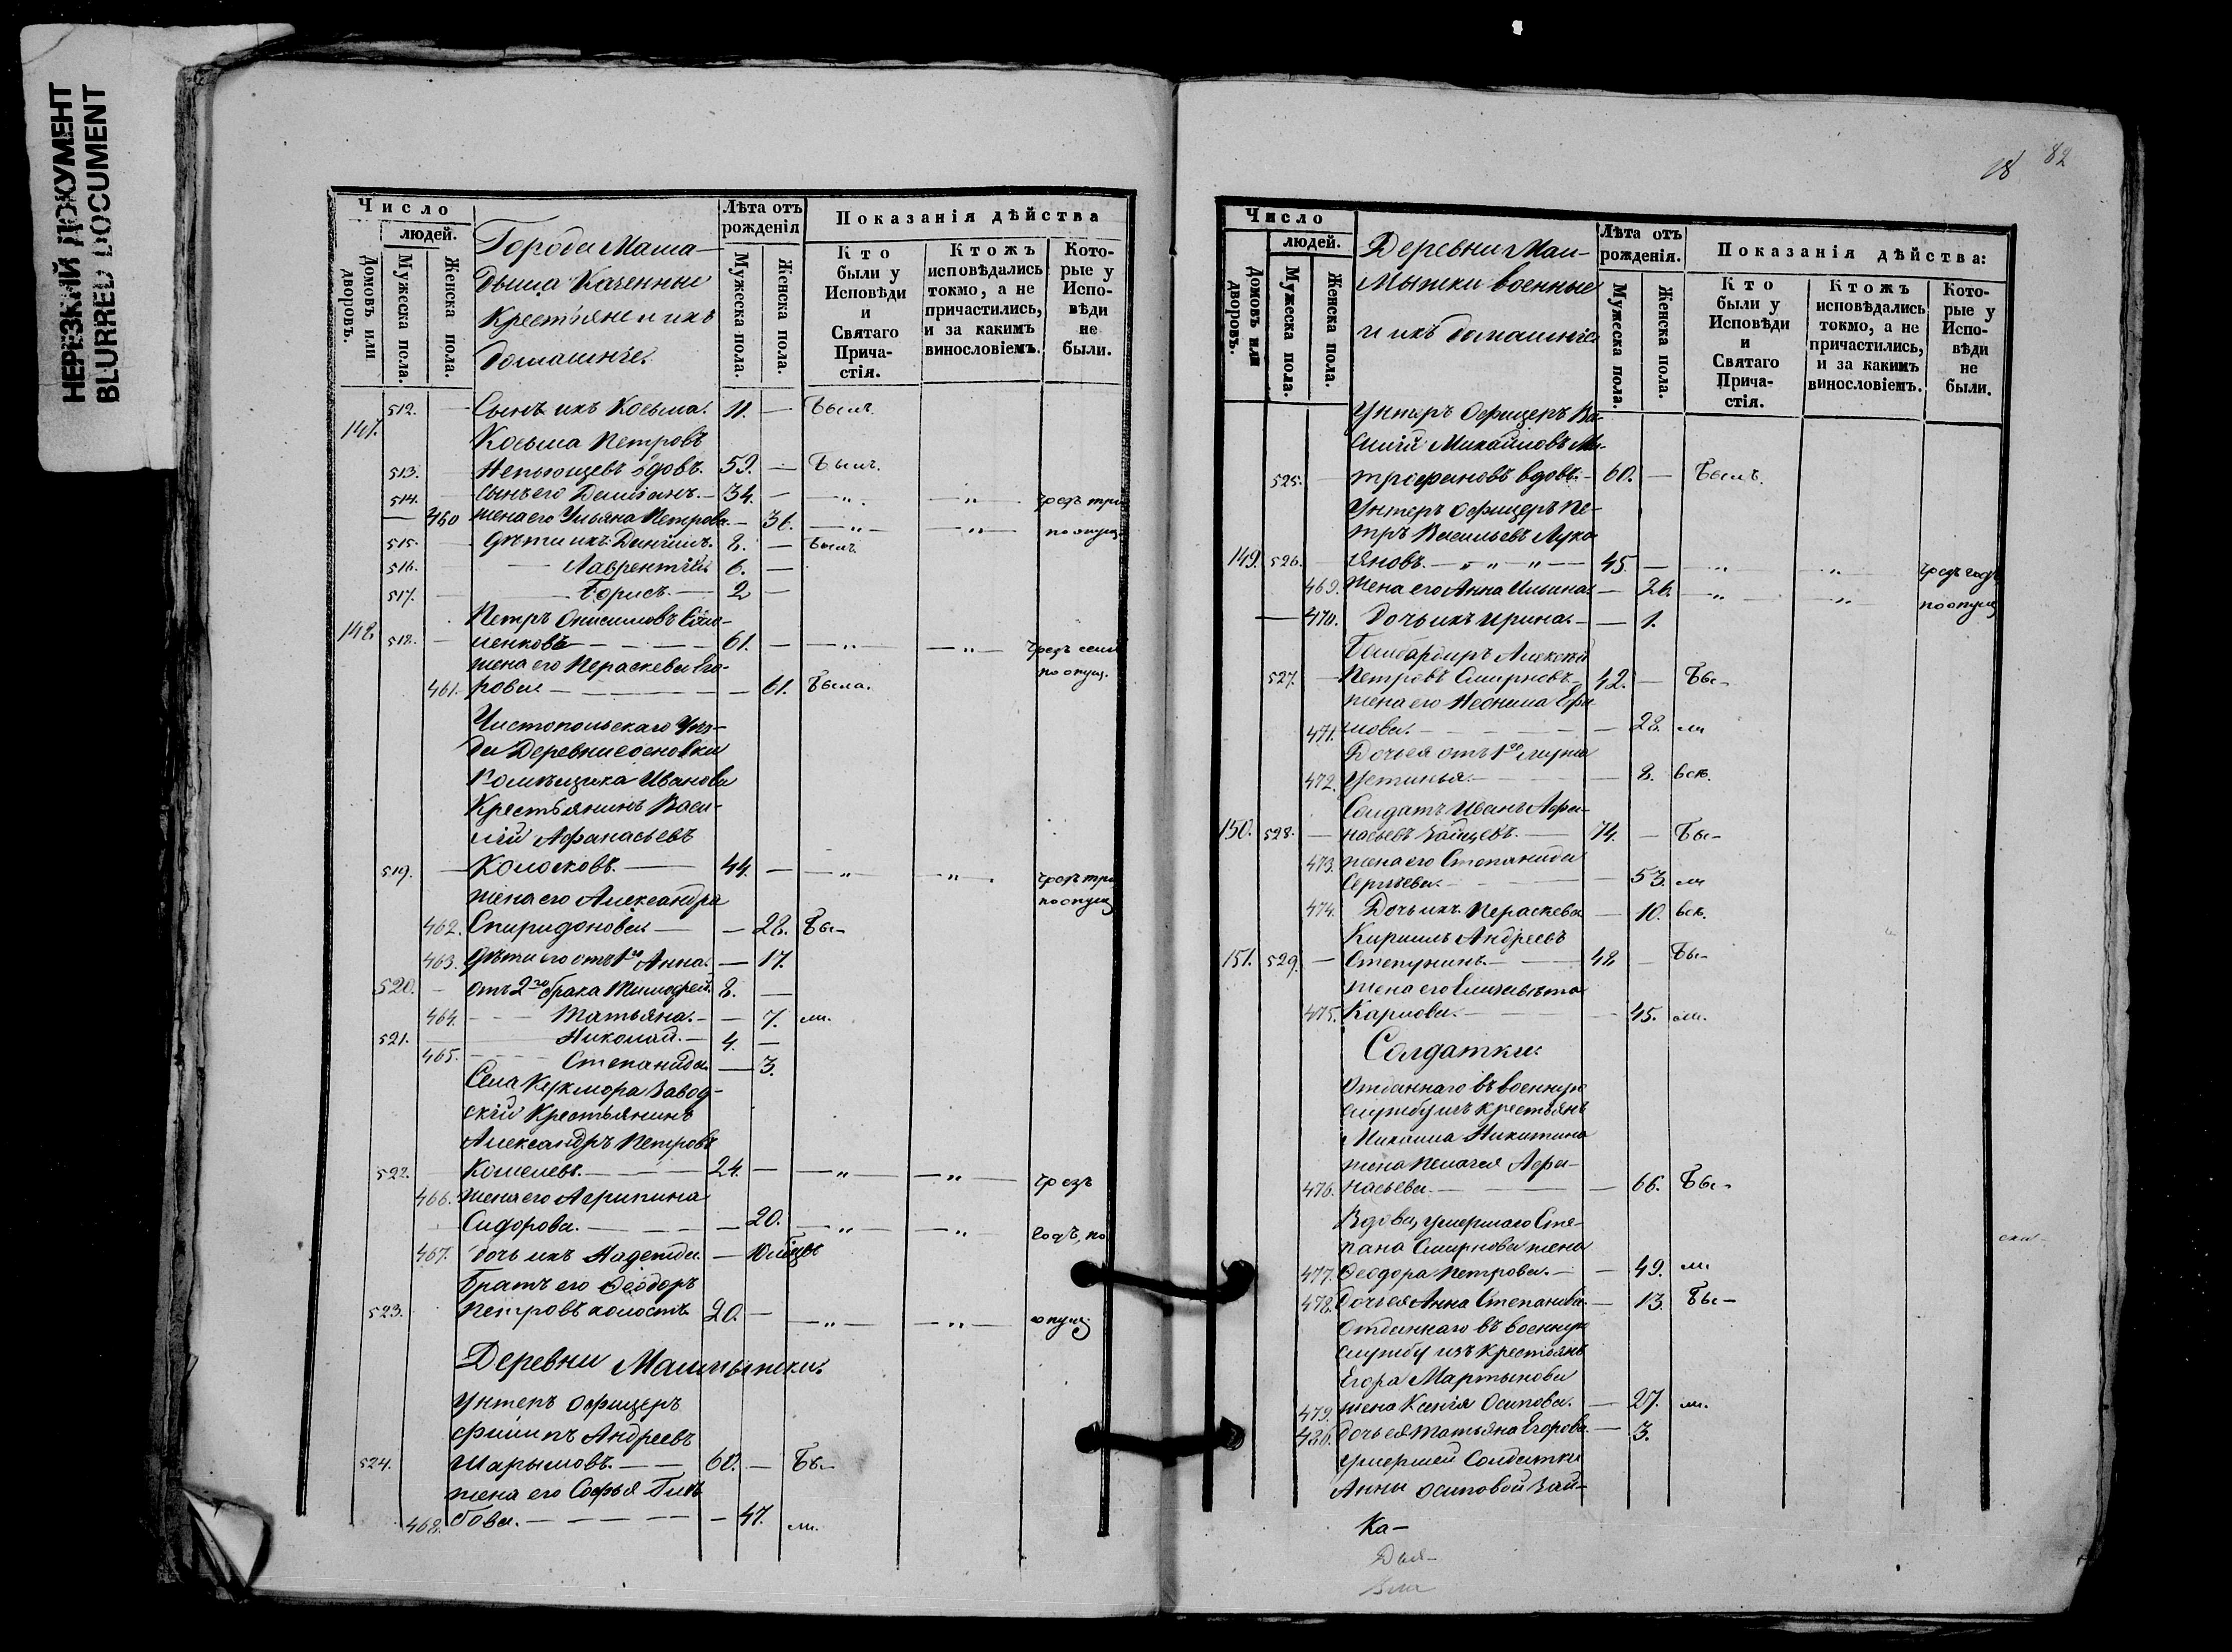 НЕРЕЗКИЙ ДОКУМЕНТ
BLURRED DOCUMENT
Число
людей.
Домовъ или дворовъ.
Мужеска пола.
Женска пола.
Города Мама-
дыша Казенные
Крестьяне и ихъ
домашніе.
Лѣта отъ рожденія
Мужеска пола.
Женска пола.
Показанія дѣйства
Кто были у Исповѣди и Святаго Причастія.
Ктожъ исповѣдались токмо, а не причастились, и за какимъ винословіемъ.
Которые у Исповѣди не были.
512. — Сынъ ихъ Косьма. 11. — Былъ.
147. Косьма Петровъ
513. вдовъ. 59. — Былъ.
514. — Сынъ его Даміанъ. — 34. — — „ — — „ — чрезъ три
— 460 жена его Ульяна Петрова. — 36. — „ — — „ — по опущ.
515. Дѣти ихъ: Даніилъ. 8. — Былъ
516. — Лаврентій. 6. —
517. — — Борисъ. — 2 —
148. Петръ Онисимовъ
518. — 61. — — „ — — „ — чрезъ семь
жена его Параскева Его- по опущ.
461. рова — — 61. Была.
Чистопольскаго Уѣз-
да Деревни Сосновки
Помѣщика Иванова
Крестьянинъ Васи-
лій Афанасьевъ
519. — Колосковъ. — 44. — — „ — „ — чрезъ три
жена его Александра по опущ
462. Спиридонова — — 28. Бы-
463. Дѣти его отъ 1го Анна. — 17.
520. — отъ 2го брака Тимофей. 8. —
464. — — — Татьяна. — — 7. ли.
521. — Николай. — 4. —
465. — — — Степанида. — 3.
Села Кукмора Завод-
скій Крестьянинъ
Александръ Петровъ
522. Кошелевъ. — — — 24. — — „ — — „ — чрезъ
466. жена его Агрипина
Сидорова. — — — — 20. — „ — — „ — годъ, по
467. дочь ихъ Надежда. — 10 мѣсцъ
Братъ его Ѳеодоръ
523. Петровъ холостъ. 20. — — „ — — „ — опущ.
Деревни Малмыжки.
Унтеръ Офицеръ
Филипъ Андреевъ
524. Шарымовъ. — — 60. — Бы-
жена его Софья Глѣ-
468. бова. — — — — — 47. ли.
18 82
Число
людей.
Домовъ или дворовъ.
Мужеска пола.
Женска пола.
Деревни Мал-
мыжки военные
и ихъ домашніе
Лѣта отъ рожденія.
Мужеска пола.
Женска пола.
Показанія дѣйства:
Кто были у Исповѣди и Святаго Причастія.
Ктожъ исповѣдались токмо, а не причастились, и за какимъ винословіемъ.
Которые у Исповѣди не были.
Унтеръ Офицеръ Ва-
силій Михайловъ Ми-
525. — трофановъ вдовъ. — 60. — Былъ.
Унтеръ Офицеръ Пе-
тръ Васильевъ Луко-
149. 526. яновъ. — „ „ — „ — 45. — — „ — „ — чрезъ годъ
469. Жена его Анна Ильина. — 26. — „ — — „ — по опущ
— 470. Дочь ихъ Ирина. — — 1.
Бомбардиръ Алексѣй
527. — Петровъ Смирновъ. — 42. — Бы-
жена его Неонила Ефи-
471. мова. — — — — 28. ли
Дочь ея отъ 1го мужа
472. Устинья. — — — 8. вск.
Солдатъ Иванъ Афа-
150. 528. — насьевъ Зайцевъ. — 74. — Бы-
473. жена его Степанида
Сергѣева. — — — 53. ли
474. Дочь ихъ Параскева — 10. вск.
Кирилъ Андреевъ
151. 529. — Степунинъ. — — 48 — Бы-
жена его Елисавета
475. Карпова. — — — 45. ли.
Солдатки.
Отданнаго въ военную
службу изъ крестьянъ
Михаила Никитина
жена Пелагея Афа-
476. насьева. — — — 66. Бы-
Вдова, умершаго Сте-
пана Смирнова жена
477. Ѳеодора Петрова. — — 49. ли
478. Дочь ея Анна Степанова. — 13. Бы-
Отданнаго въ военную
службу изъ крестьянъ
Егора Мартынова
479. жена Ксенія Осипова. — 27. ли.
480. дочь ея Татьяна Егорова. — 3.
умершей Солдатки
Анны Осиповой Зай-
Ка-